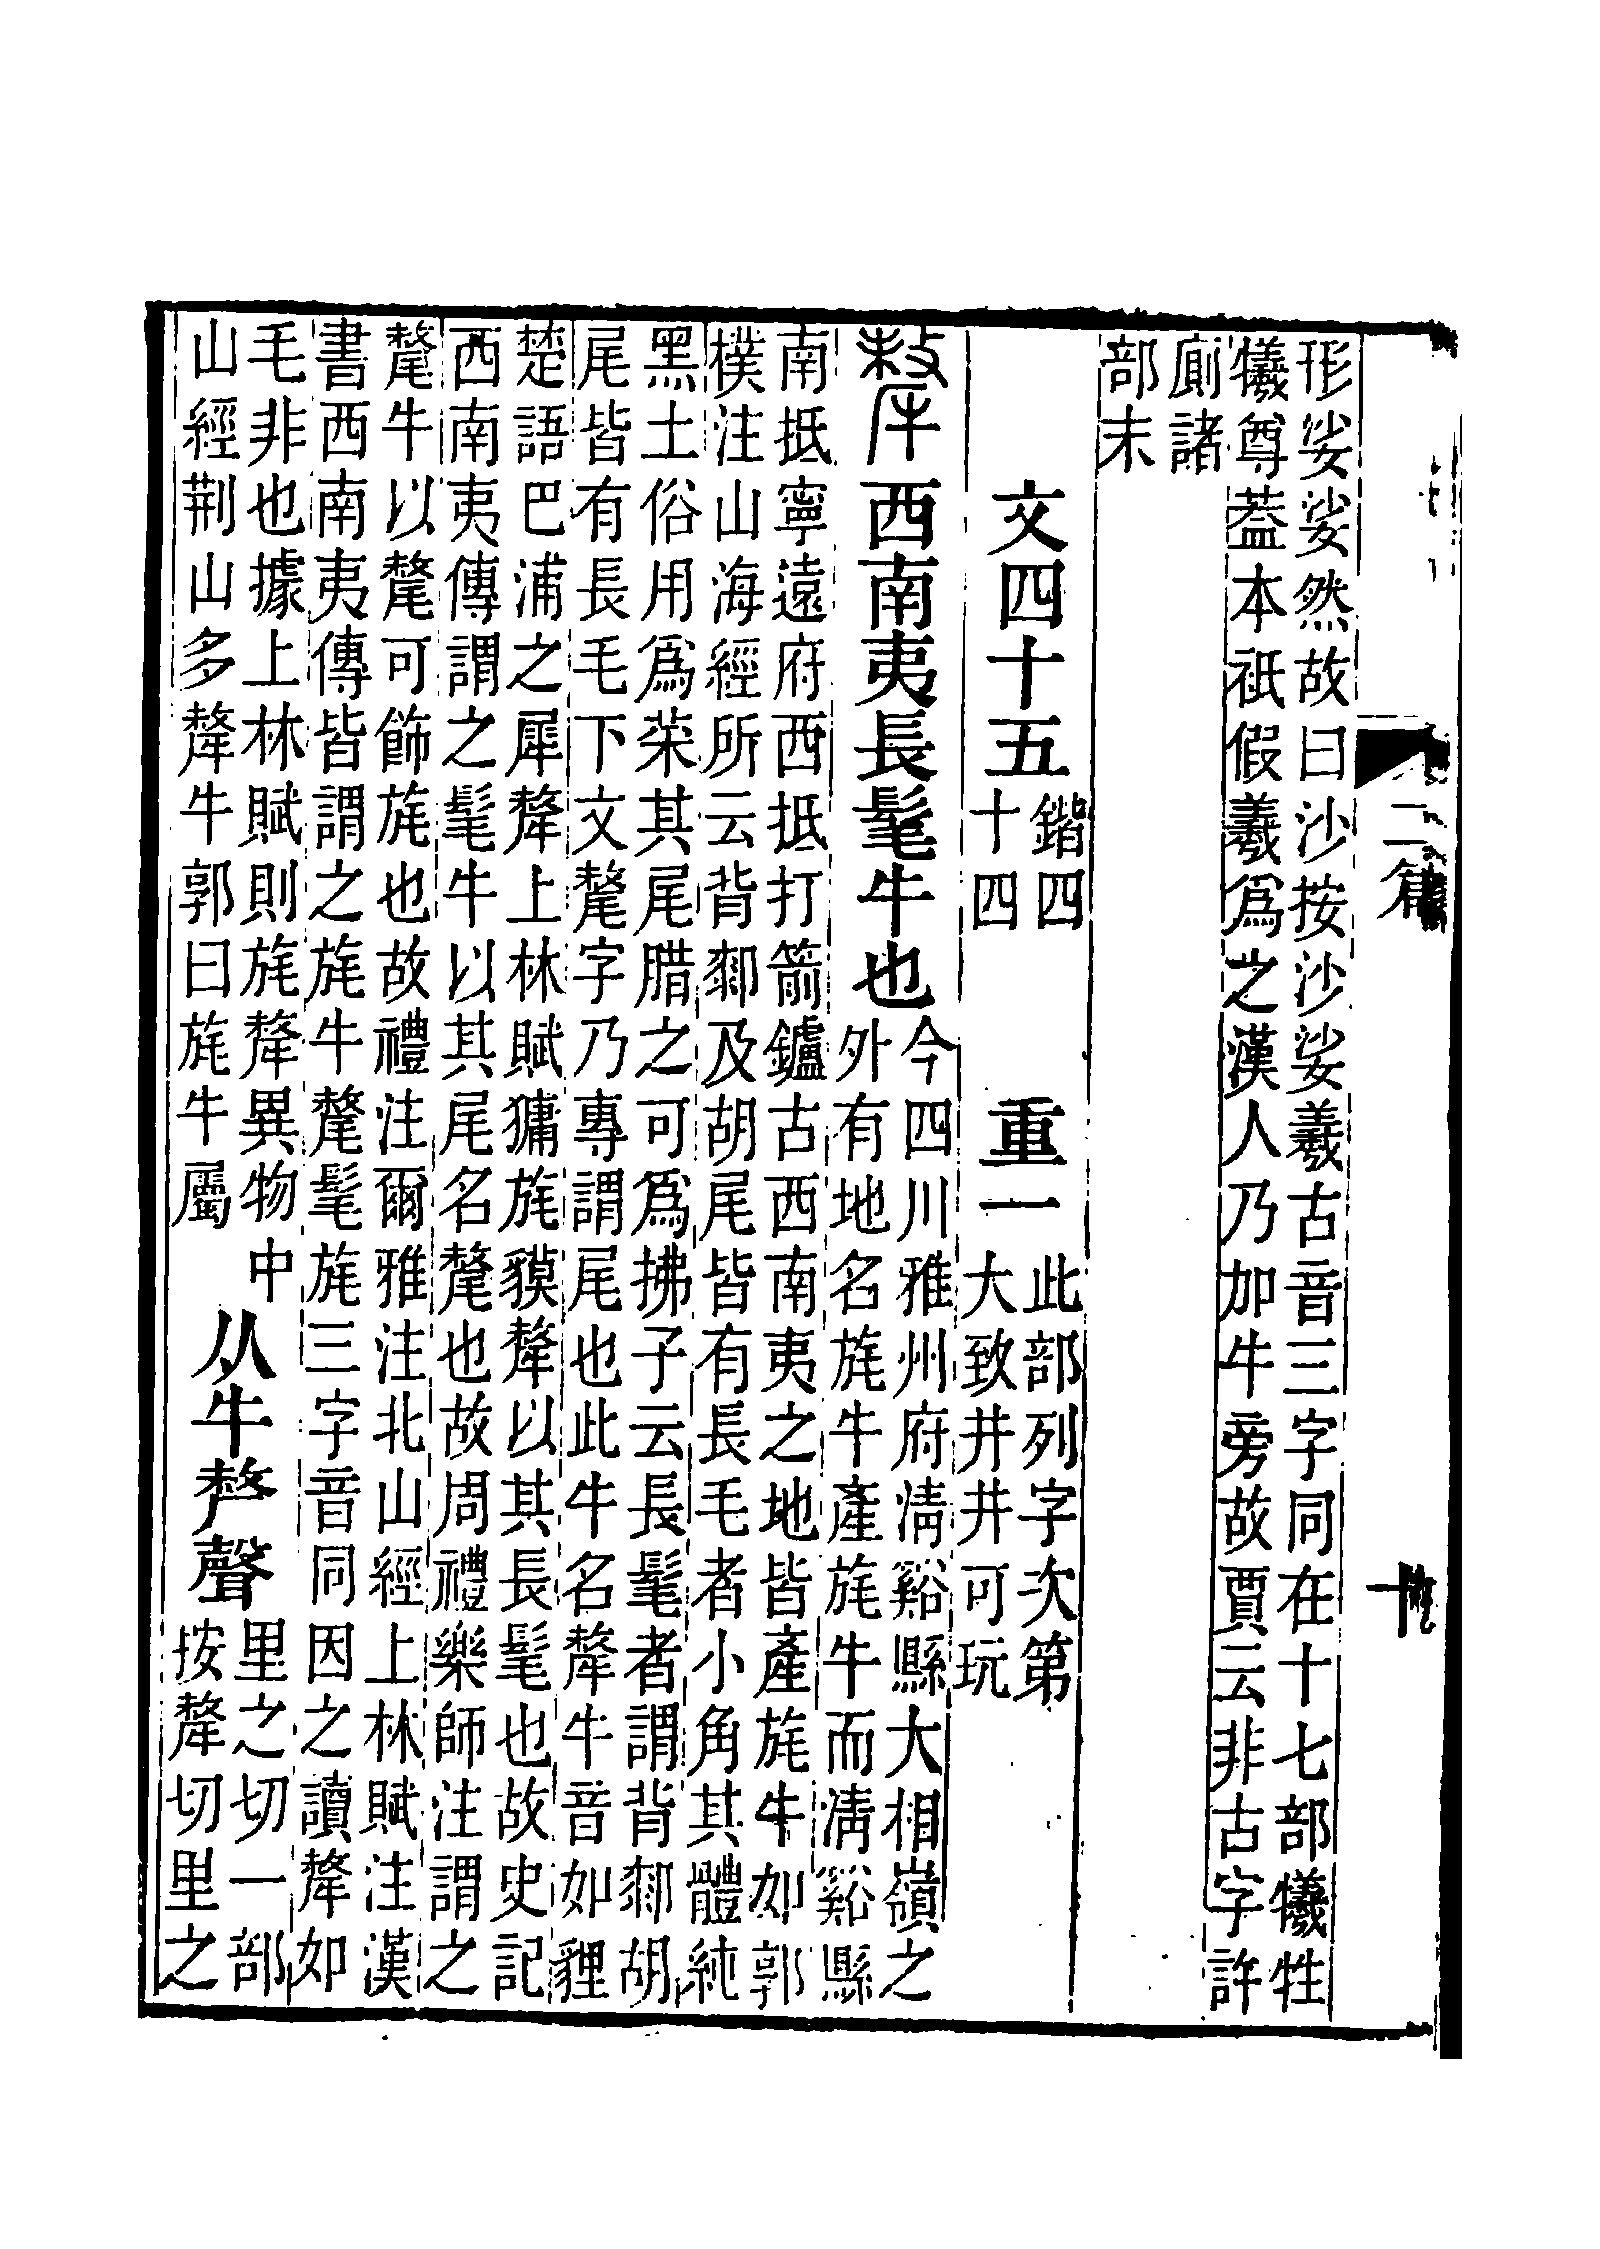 二篇
十
形娑娑然故曰沙按沙娑羲古音三字同在十七部犧牲
犧尊葢本祇假羲爲之漢人乃加牛旁故賈云非古字許
廁諸
部末
文四十五 鍇四十四 重一 此部列字次第大致井井可玩
犛 西南夷長髦牛也 今四川雅州府淸谿縣大相嶺之
外有地名旄牛產旄牛而淸谿縣
南抵寧遠府西抵打箭鑪古西南夷之地皆產旄牛如郭
樸注山海經所云背䣛及胡尾皆有長毛者小角其體純
黑土俗用爲菜其尾腊之可爲拂子云長髦者謂背䣛胡
尾皆有長毛下文氂字乃專謂尾也此牛名犛牛音如貍
楚語巴浦之犀犛上林賦㺎旄獏犛以其長髦也故史記
西南夷傳謂之髦牛以其尾名氂也故周禮樂師注謂之
氂牛以氂可飾旄也故禮注爾雅注北山經上林賦注漢
書西南夷傳皆謂之旄牛氂髦旄三字音同因之讀犛如
毛非也據上林賦則旄犛異物中
山經荆山多犛牛郭曰旄牛屬
从牛𠩺聲 里之切一部
按犛切里之